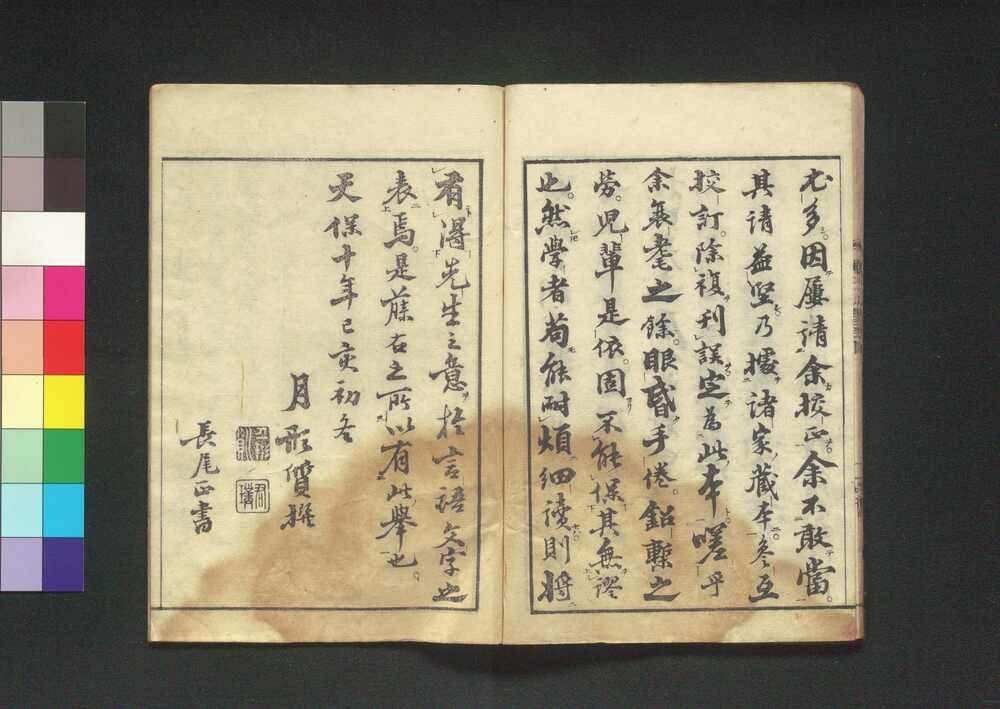 尤多因屢請余挍正余不敢當
其請益堅乃據諸家藏本參互
挍訂除複刊誤定為此本嗟乎
余衰耄之餘眼昏手倦鉛槧之
勞児輩是依固不能保其無謬
也然学者苟能耐煩細讀則将
有得先生之意於言語文字之
表焉是藤右之所以有此舉也
天保十年己亥初冬
月形質撰
長尾正書